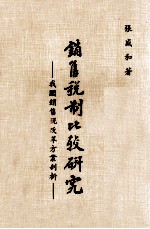 張盛和著
銷售稅制比較研究
——我國銷售稅改革方案剖析——